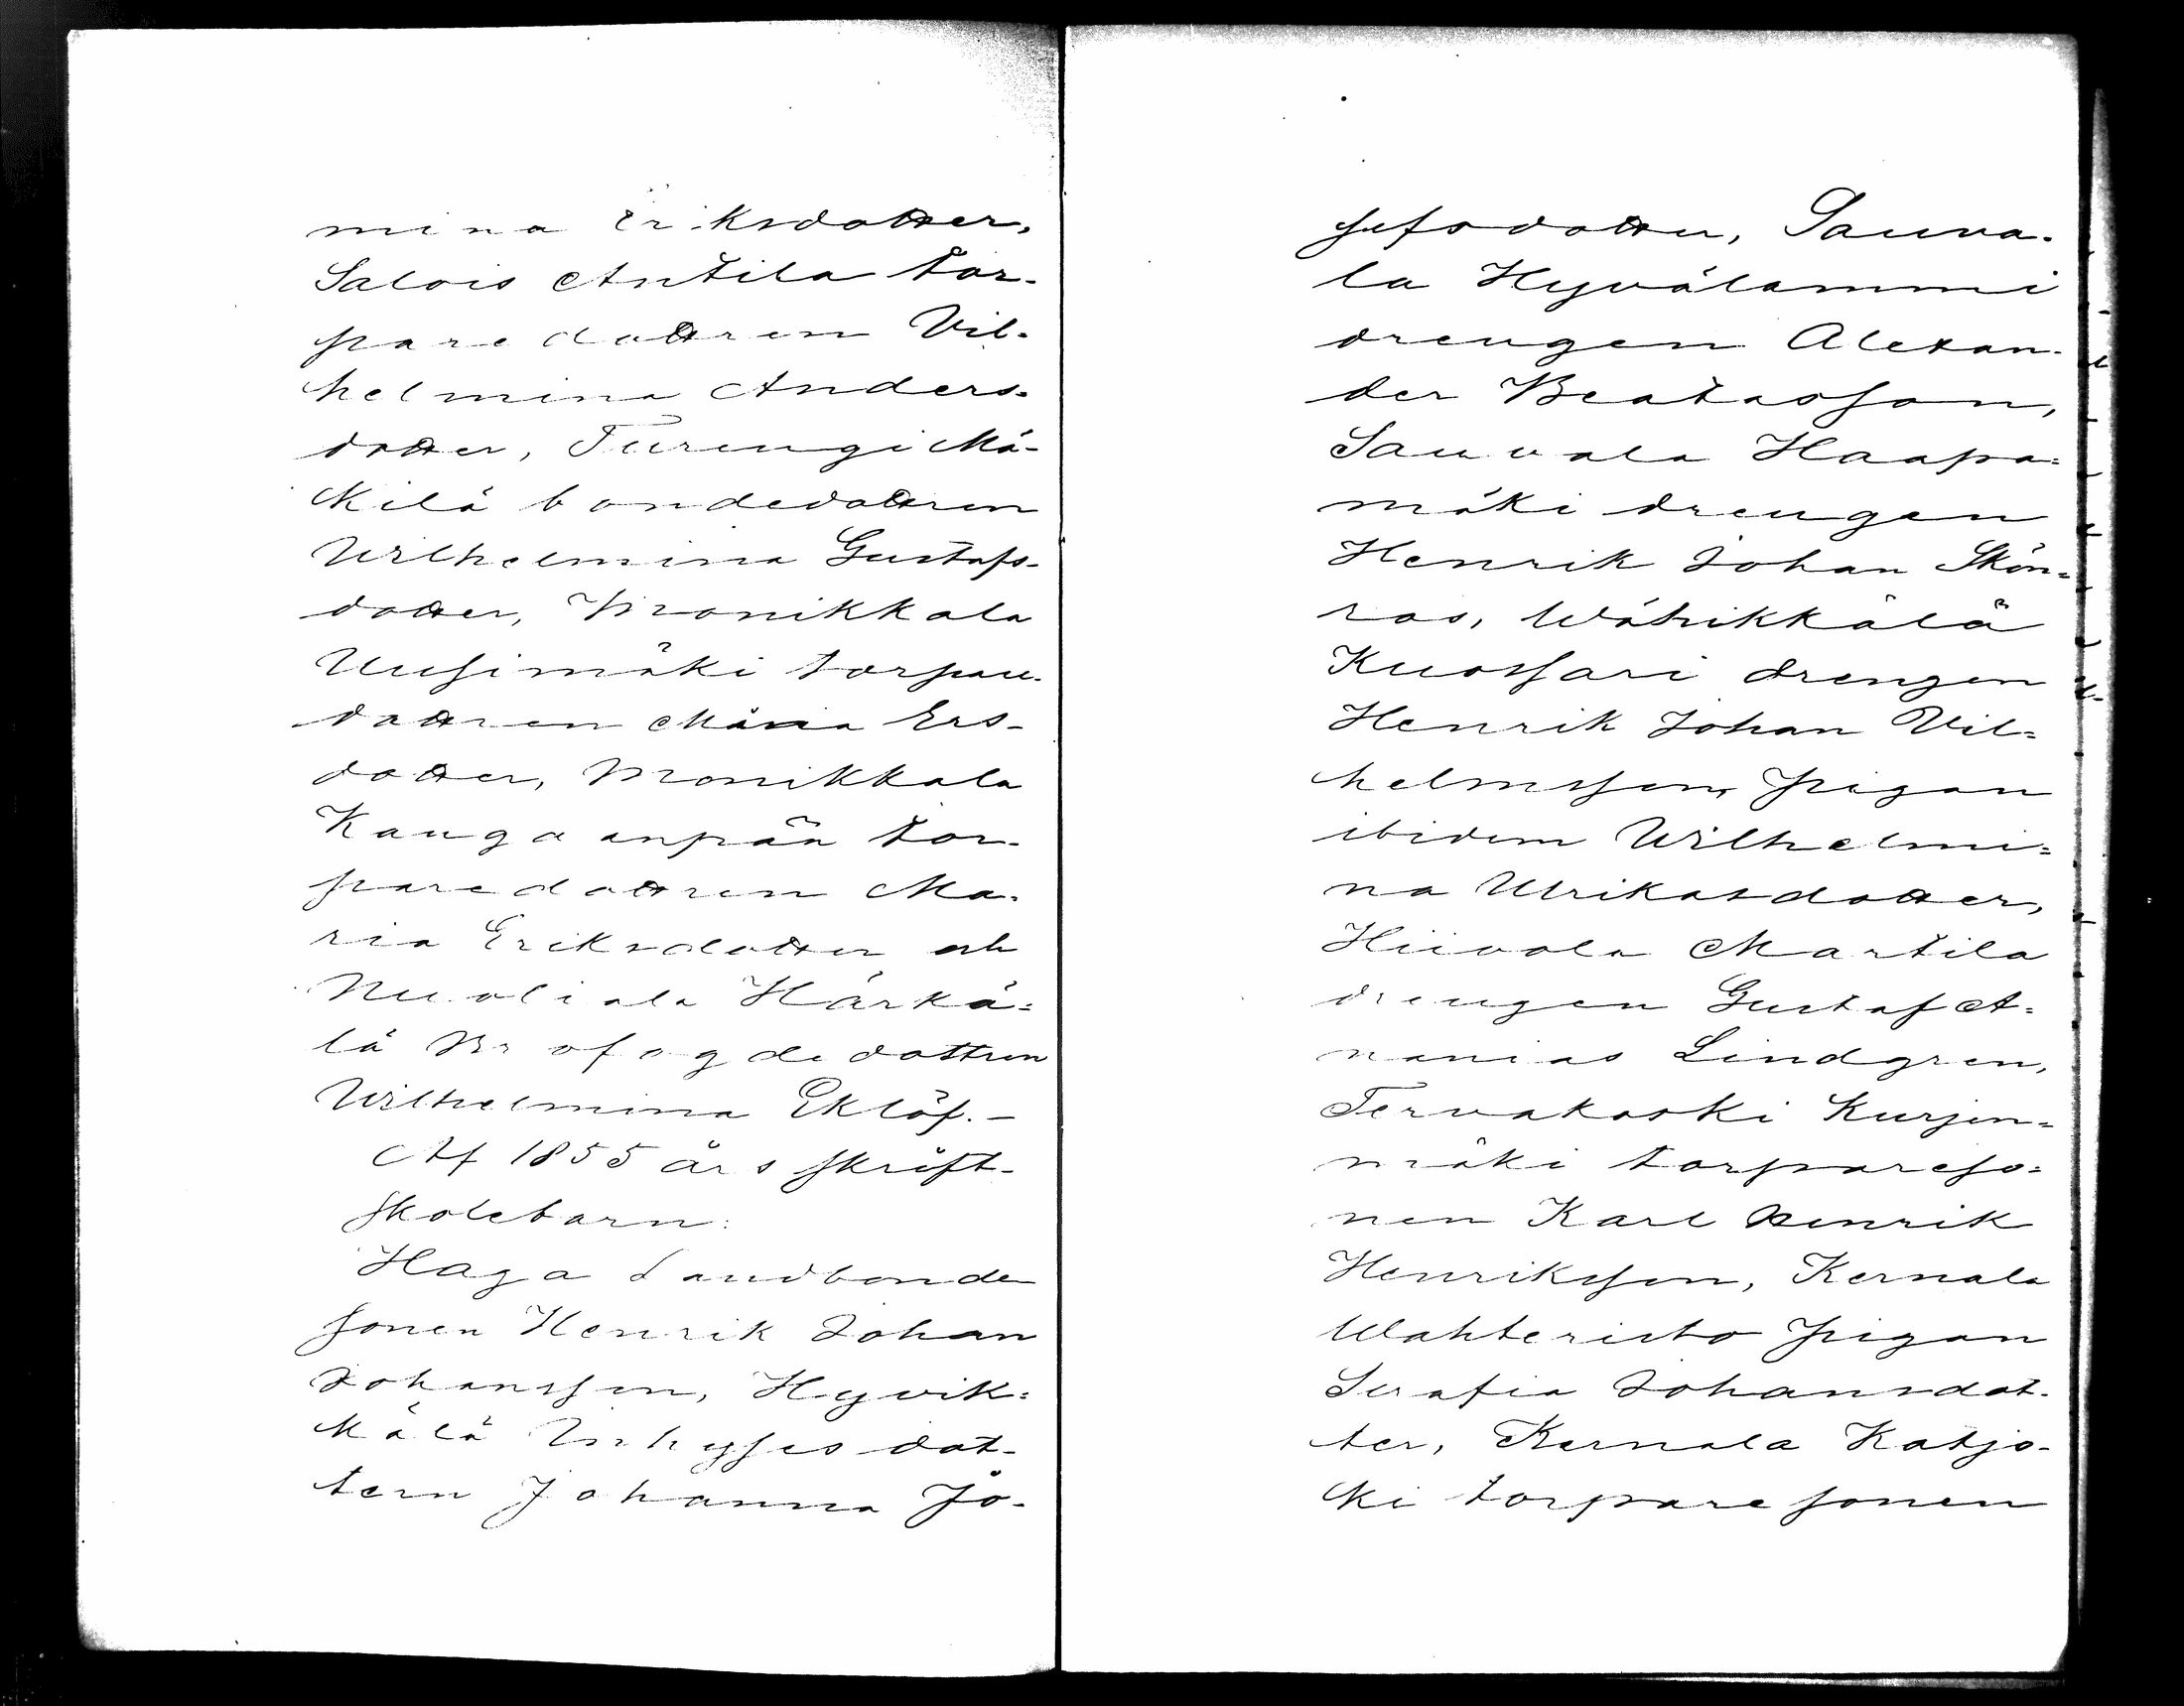 mina Eriksdotter,
Salois Anttila tor-
paredottren Vil-
helmina Anders-
dotter, Turengi Mä-
kilä bondedottren
Wilhelmina Gustafs-
dotter, Monikkala
Uusimäki torpare-
dottren Maria Ers-
dotter, Monikkala
Kangaanpää tor-
paredottren Ma-
ria Eriksdotter och
Nuoliala Härkä=
lä Rrofogdedottren
Wilhelmina Eklöf. -
Af 1855 års skrift-
skolebarn:
Haga Landbonde
sonen Henrik Johan
Johansson, Hyvik=
kälä Inhysesdot-
tern Johanna Jo-
sefsdotter, Sauva-
la Hyvälammi
drengen Alexan-
der Beatasson,
Sauvala Haapa=
mäki drengen
Henrik Johan Skön=
ros, Wähikkälä
Kuossari drengen
Henrik Johan Vil=
helmsson, pigan
ibidem Wilhelmi=
na Ulrikasdotter,
Hiivola Martila
drengen Gustaf A=
nanias Lindgren,
Tervakoski Kurjen=
mäki torpareso=
nen Karl Henrik
Henriksson, Kernala
Wahteristo pigan
Serafia Johansdot-
ter, Kernala Katjo-
ki torparesonen